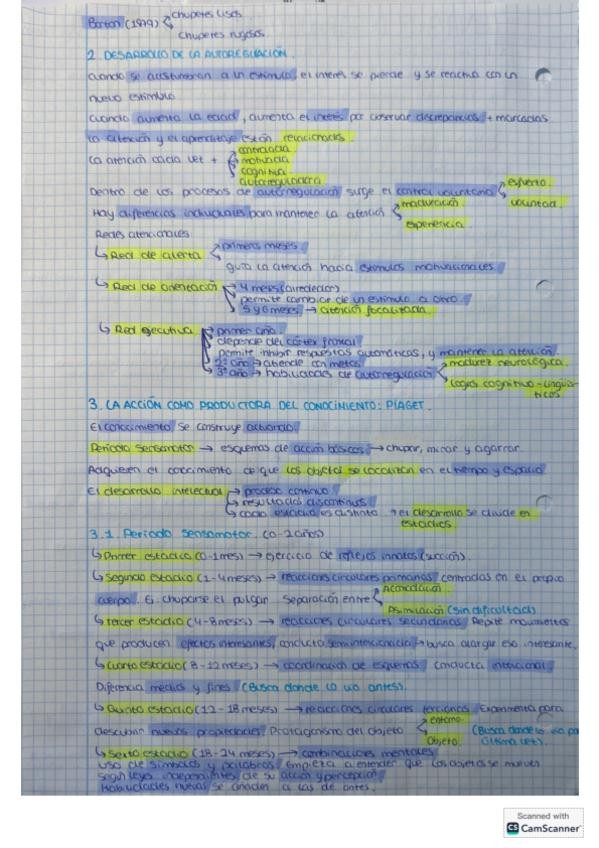 Barton (1979) chupetes lisos
chupetes rugosos
2. DESARROLLO DE LA AUTOREGULACIÓN.
Cuando se acostumbran a un estímulo, el interés se pierde y se reactiva con un
nuevo estímulo
Cuando aumenta la edad, aumenta el interés por observar discrepancias + marcadas
La atención y el aprendizaje están relacionados.
La atención cada vez + controlada
motivada
cognitiva
autorreguladora
Dentro de los procesos de autorregulación surge el control voluntario esfuerzo.
voluntad.
Hay diferencias individuales para mantener la atención maduración
experiencia.
Redes atencionales
↳ Red de alerta primeros meses
guía la atención hacia estímulos motivacionales.
↳ Red de orientación 4 meses (alrededor)
permite cambiar de un estímulo a otro.
5 y 6 meses → atención focalizada.
↳ Red ejecutiva primer año.
depende del córtex frontal
permite inhibir respuestas automáticas, y mantener la atención.
2º año → atiende con metas madurez neurológica.
3º año → habilidades de autorregulación logros cognitivo-lingüís-
ticos
3. LA ACCIÓN COMO PRODUCTORA DEL CONOCIMIENTO: PIAGET.
El conocimiento se construye actuando.
Periodo sensomotor → esquemas de acción básicos → chupar, mirar y agarrar.
Adquieren el conocimiento de que los objetos se localizan en el tiempo y espacio
El desarrollo intelectual → proceso continuo
→ resultados discontinuos
→ cada estadio es distinto → el desarrollo se divide en
estadios
3.1. Periodo Sensomotor. (0-2 años)
↳ Primer estadio (0-1 mes) → ejercicio de reflejos innatos (succión).
↳ Segundo estadio (1-4 meses) → reacciones circulares primarias centradas en el propio
cuerpo. Ej. chuparse el pulgar separación entre Acomodación
Asimilación (sin dificultad)
↳ tercer estadio (4-8 meses) → reacciones circulares secundarias. Repite movimientos
que producen efectos interesantes, conducta semiintencionada → busca alargar eso interesante.
↳ Cuarto estadio (8-12 meses) → coordinación de esquemas conducta intencional
Diferencia medios y fines (Busca donde lo vio antes).
↳ Quinto estadio (12-18 meses) → reacciones circulares terciarias. Experimenta para
descubrir nuevas propiedades. Protagonismo del objeto entorno.
Objeto. (Busca donde lo vio por
última vez).
↳ Sexto estadio (18-24 meses) → combinaciones mentales
uso de símbolos y palabras. Empieza a entender que los objetos se mueven
según leyes independientes de su acción y percepción
Habilidades nuevas se añaden a las de antes.
Scanned with
CS CamScanner